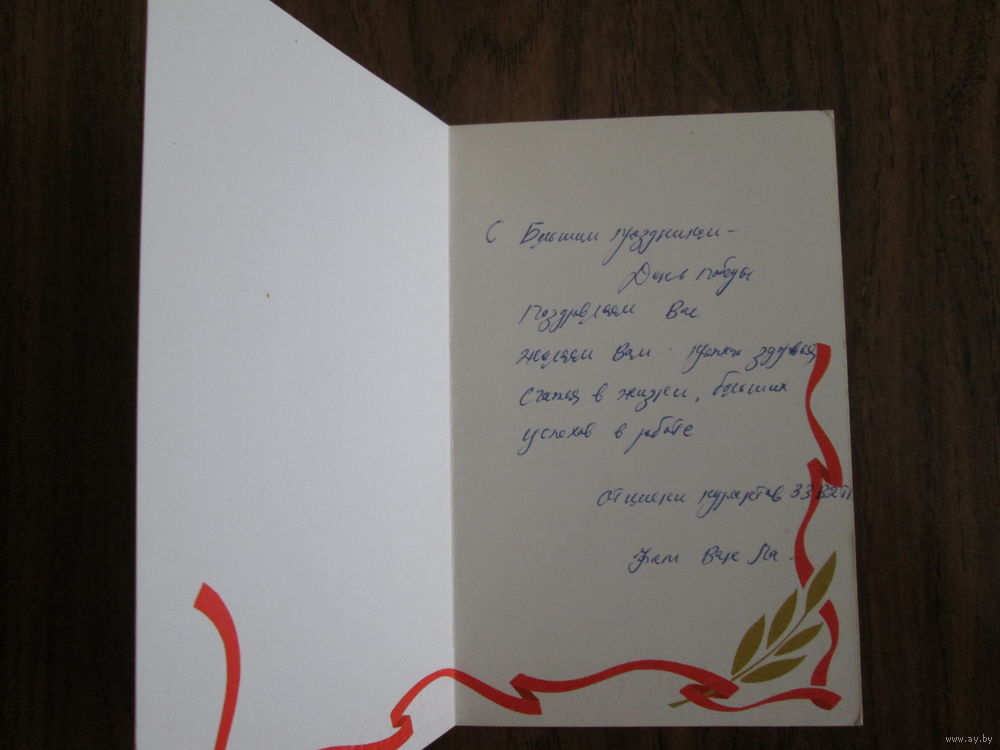 С Большим праздником -
День Победы
Поздравляем Вас
Желаем Вам здоровья
счастья в жизни, больших
успехов в работе
От имени 33
Фам Ван
www.ay.by